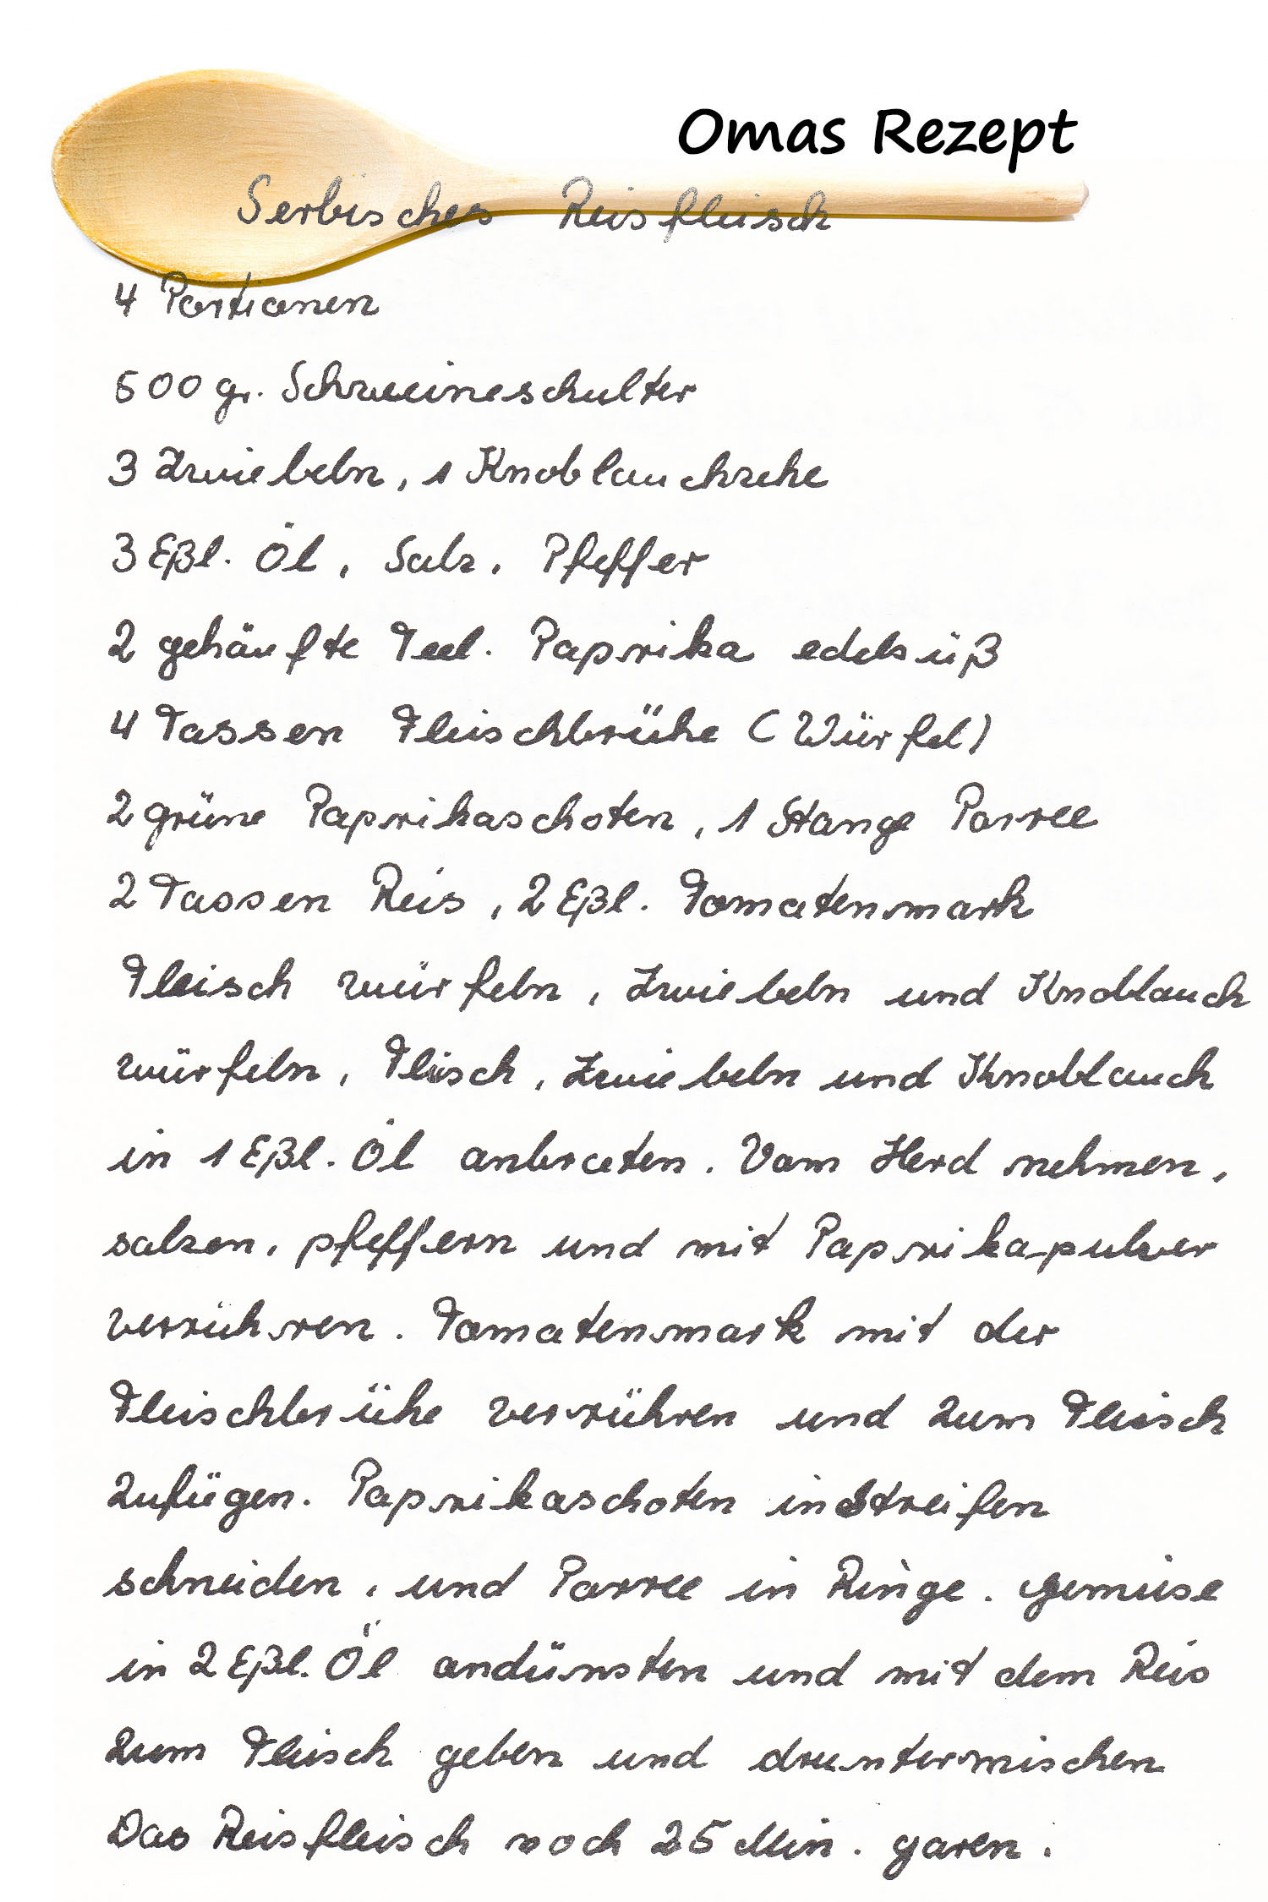 Omas Rezept
Serbisches Reisfleisch
4 Portionen
500 gr. Schweineschulter
3 Zwiebeln, 1 Knoblauchzehe
3 Eßl. Öl, Salz, Pfeffer
2 gehäufte Teel. Paprika edelsüß
4 Tassen Fleischbrühe (Würfel)
2 grüne Paprikaschoten, 1 Stange Porree
2 Tassen Reis, 2 Eßl. Tomatenmark
Fleisch würfeln, Zwiebeln und Knoblauch
würfeln, Fleisch, Zwiebeln und Knoblauch
in 1 Eßl. Öl anbraten. Vom Herd nehmen,
salzen, pfeffern und mit Paprikapulver
verrühren. Tomatenmark mit der
Fleischbrühe verrühren und zum Fleisch
zufügen. Paprikaschoten in Streifen
schneiden, und Porree in Ringe. Gemüse
in 2 Eßl. Öl andünsten und mit dem Reis
zum Fleisch geben und druntermischen
Das Reisfleisch noch 25 Min. garen.